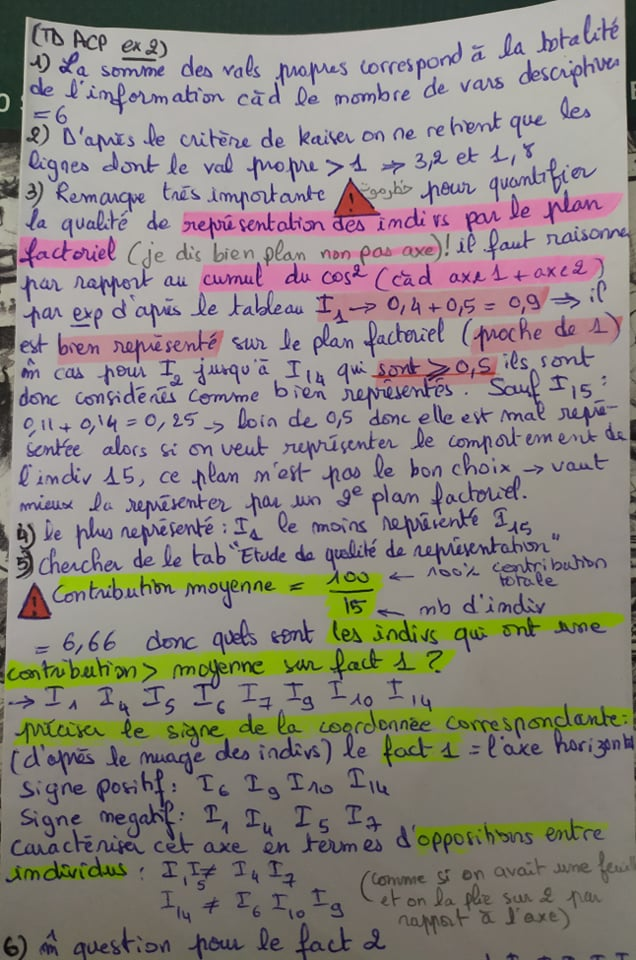 (TD ACP ex 2)
1) La somme des vals propres correspond à la totalité
de l'information càd le nombre de vars descriptives
= 6
2) D'après le critère de kaiser on ne retient que les
lignes dont le val propre > 1 ⇒ 3,2 et 1,8
3) Remarque très importante ! pour quantifier
la qualité de représentation des indivs par le plan
factoriel (je dis bien plan non pas axe)! il faut raisonner
par rapport au cumul du cos² (càd axe 1 + axe 2)
par exp d'après le tableau I1 → 0,4 + 0,5 = 0,9 ⇒ il
est bien représenté sur le plan factoriel (proche de 1)
m̂ cas pour I2 jusqu'à I14 qui sont ⩾ 0,5 ils sont
donc considérés comme bien représentés. Sauf I15 :
0,11 + 0,14 = 0,25 → loin de 0,5 donc elle est mal repré-
sentée alors si on veut représenter le comportement de
l'indiv 15, ce plan n'est pas le bon choix → vaut
mieux la représenter par un 2e plan factoriel.
4) le plus représenté : I1 le moins représenté I15
5) Chercher de le tab "Etude de qualité de représentation"
! Contribution moyenne = 100 ← 100% contribution totale
15 ← nb d'indiv
= 6,66 donc quels sont les indivs qui ont une
contribution > moyenne sur fact 1 ?
→ I1 I4 I5 I6 I7 I9 I10 I14
préciser le signe de la coordonnée correspondante :
(d'après le nuage des indivs) le fact 1 = l'axe horizontal
Signe positif : I6 I9 I10 I14
Signe negatif : I1 I4 I5 I7
caractériser cet axe en termes d'oppositions entre
individus : I1 I5 ≠ I4 I7
I14 ≠ I6 I10 I9
(comme si on avait une feuille
et on la plie sur 2 par
rapport à l'axe)
6) m̂ question pour le fact 2